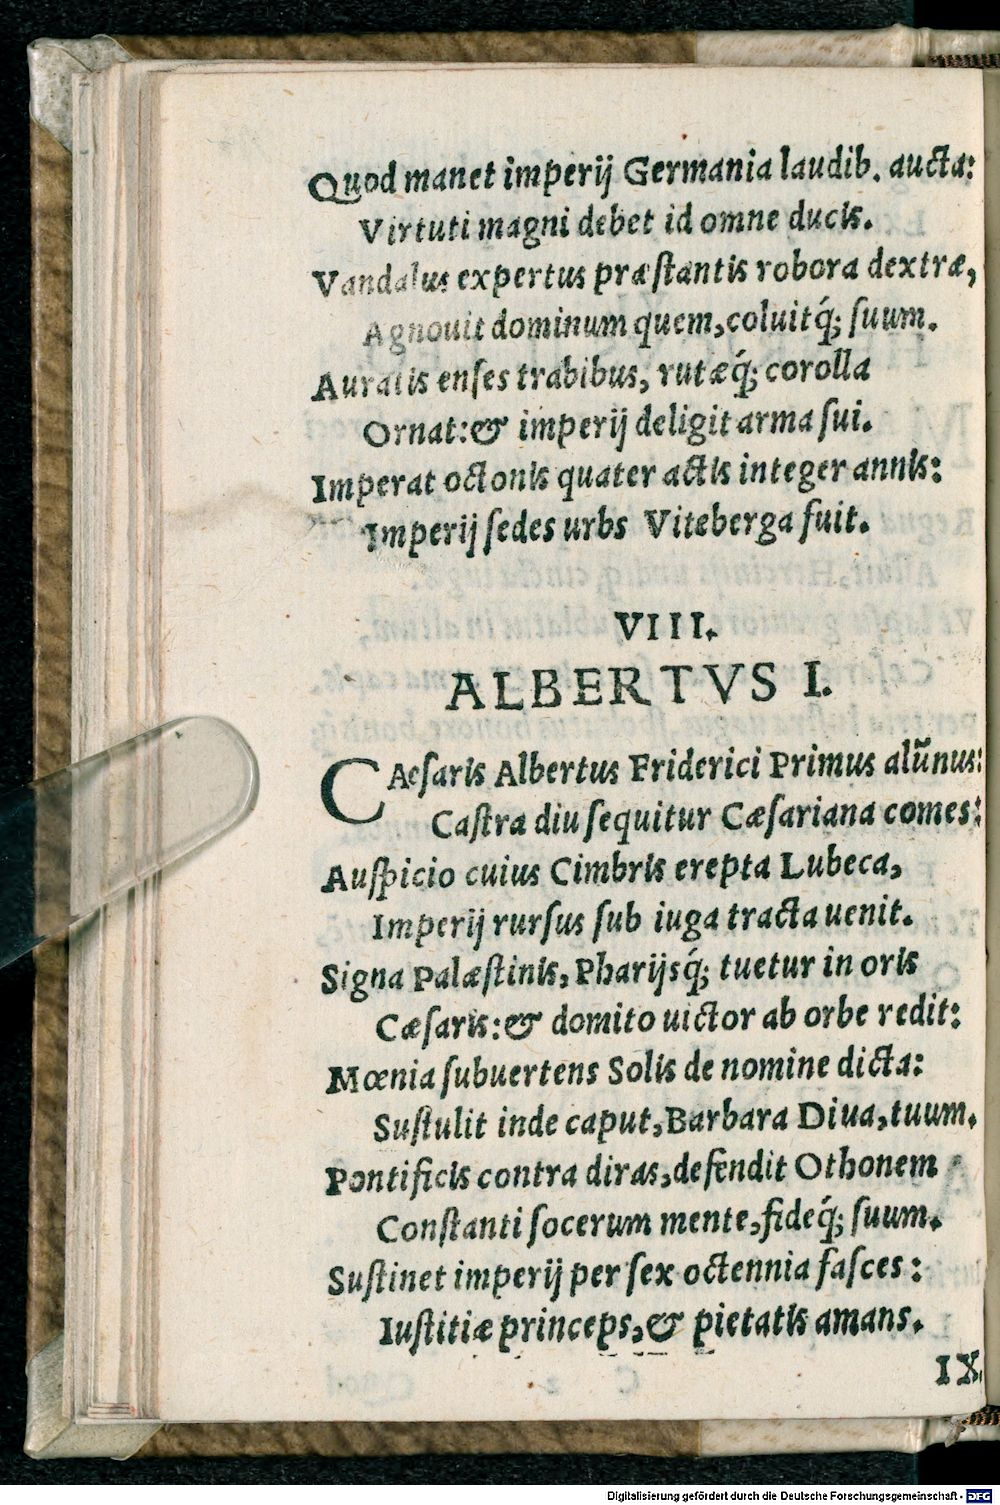 Quod manet imperij Germania laudib. aucta:
Virtuti magni debet id omne ducis.
Vandalus expertus præſtantis robora dextræ,
Agnouit dominum quem, coluitq́; ſuum.
Auratis enſes trabibus, rutæq́; corolla
Ornat: & imperij deligit arma ſui.
Imperat octonis quater actis integer annis:
Imperij ſedes urbs Viteberga fuit.
VIII.
ALBERTVS I.
CAeſaris Albertus Friderici Primus alũnus:
Caſtra diu ſequitur Cæſariana comes:
Auſpicio cuius Cimbris erepta Lubeca,
Imperij rurſus ſub iuga tracta uenit.
Signa Palæſtinis, Pharijsq́; tuetur in oris
Cæſaris: & domito uictor ab orbe redit:
Mœnia ſubuertens Solis de nomine dicta:
Suſtulit inde caput, Barbara Diua, tuum.
Pontificis contra diras, defendit Othonem
Conſtanti ſocerum mente, fideq́; ſuum.
Suſtinet imperij per ſex octennia faſces:
Iuſtitiæ princeps, & pietatis amans.
IX.
Digitalisierung gefördert durch die Deutsche Forschungsgemeinschaft - DFG